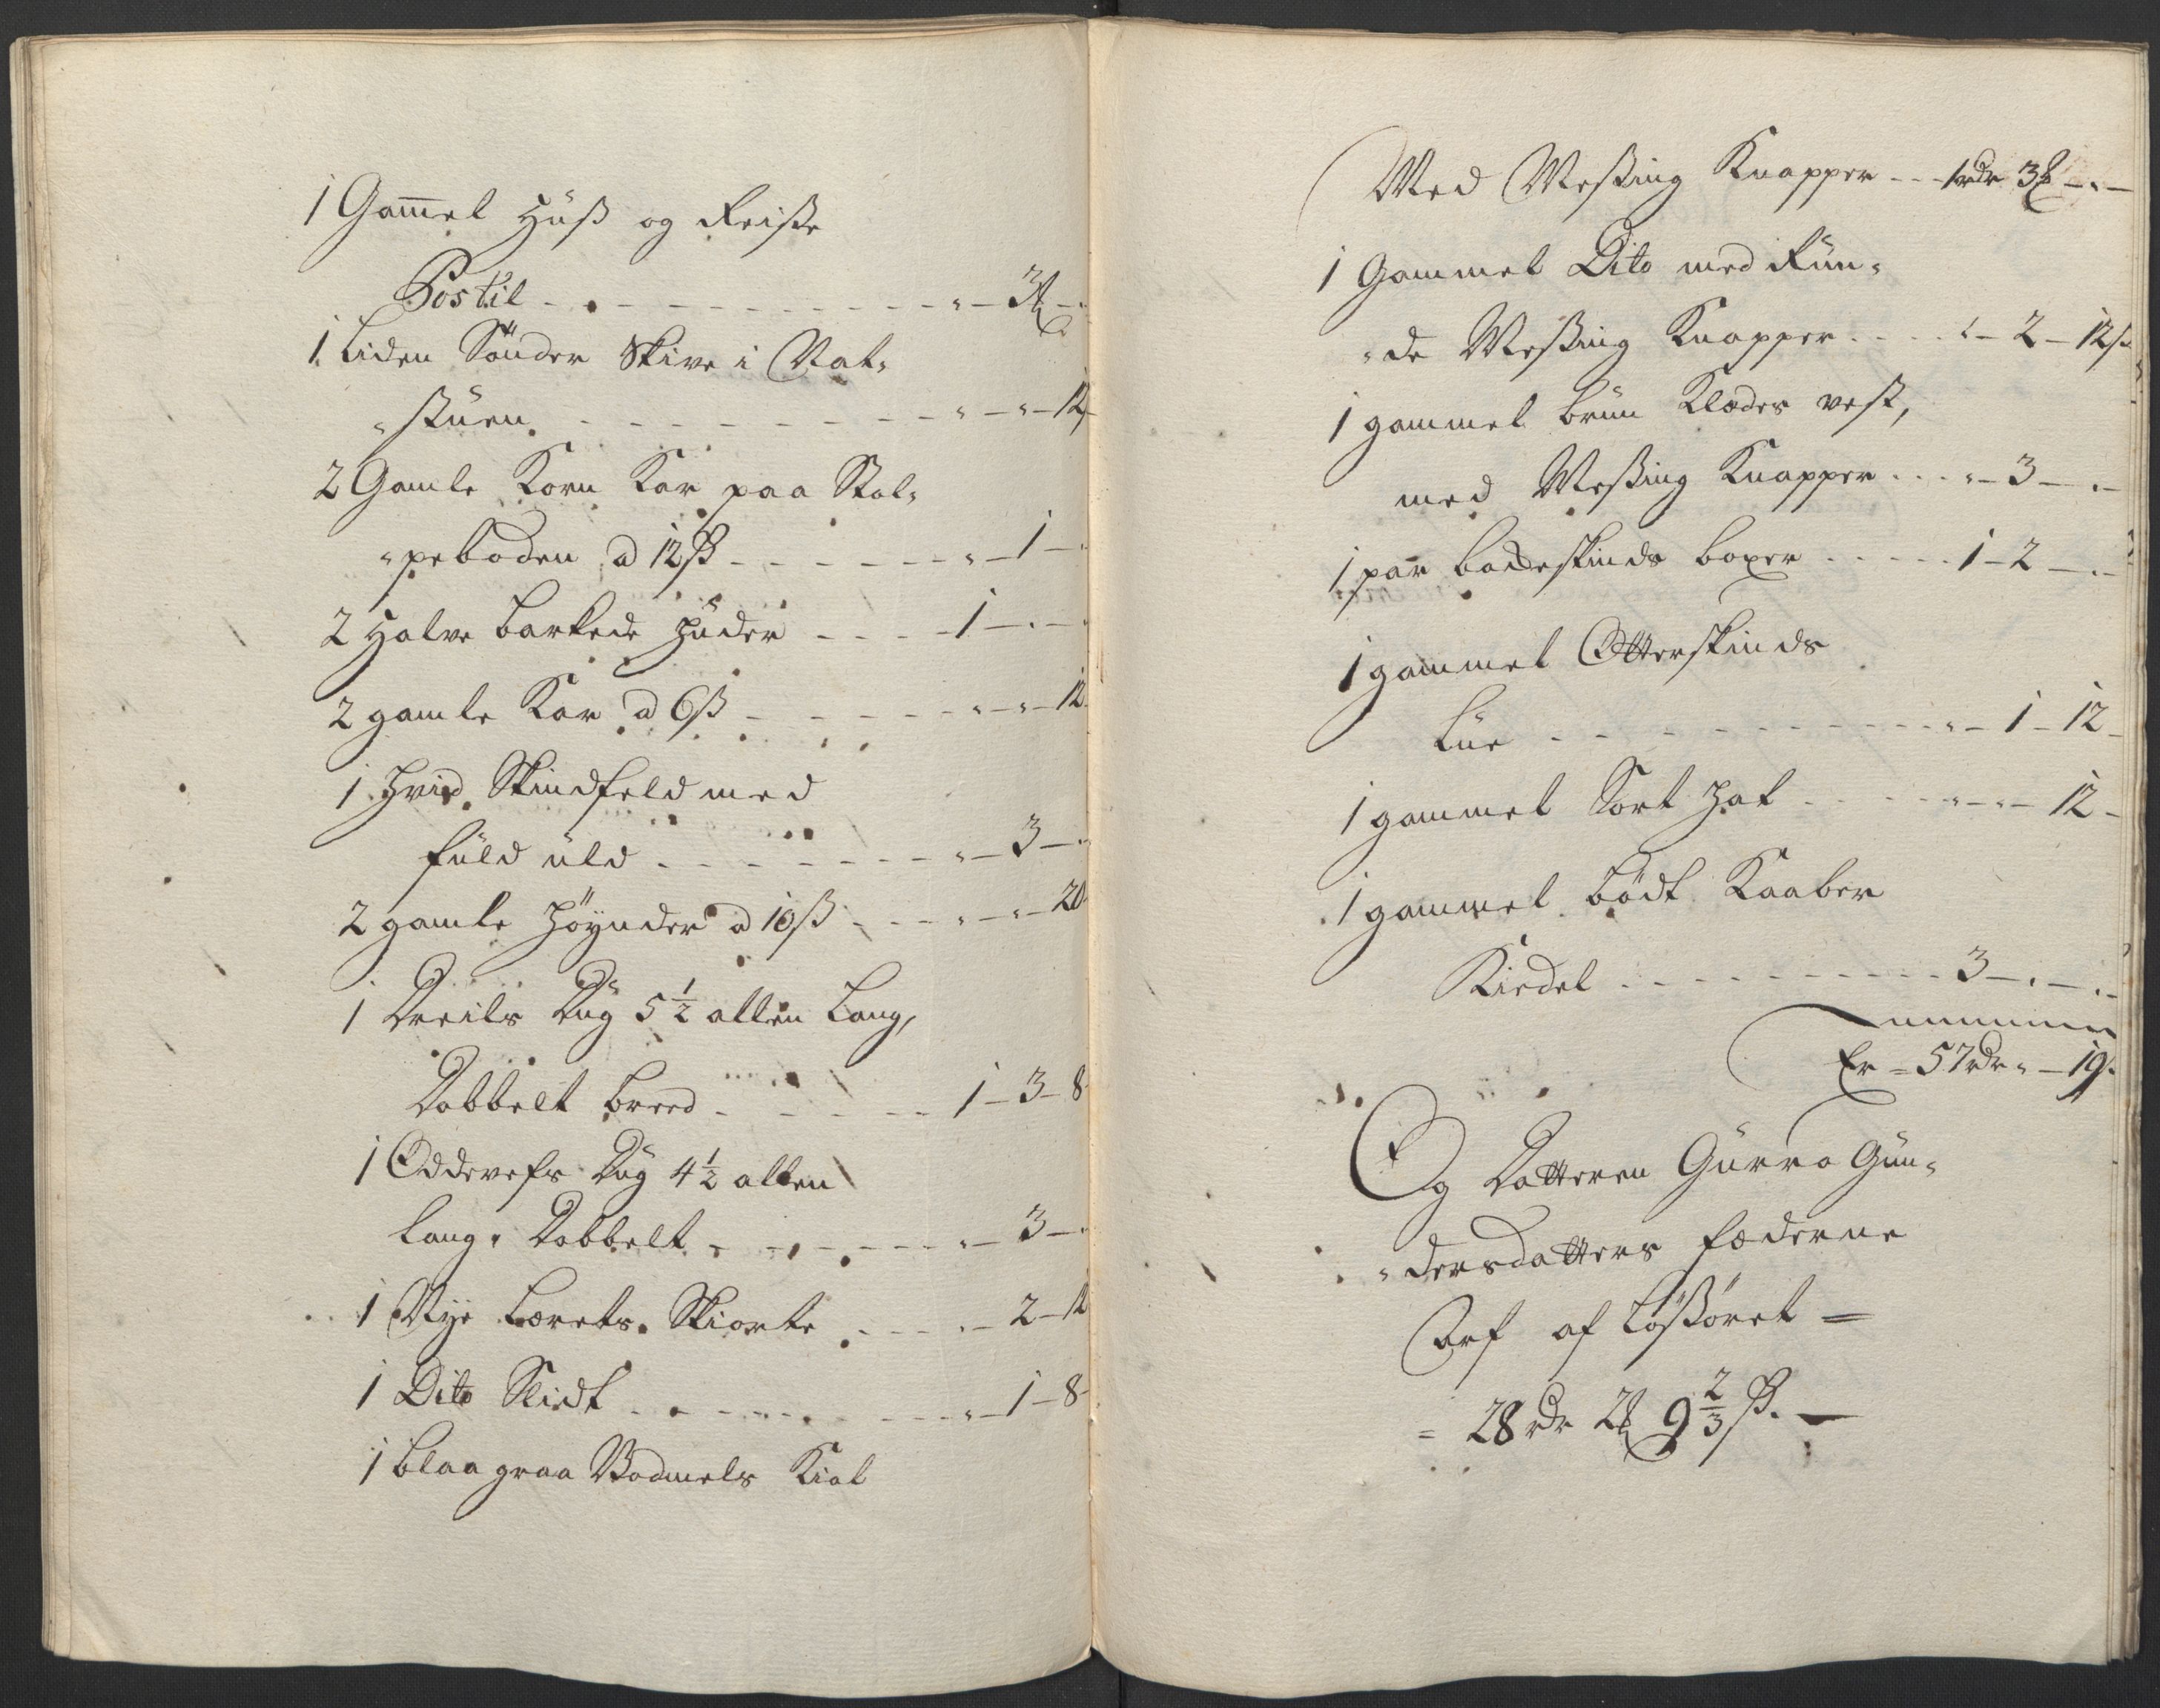 1 Gam̄el Huß og Reiße
Postil - - - - - „ - 3 ℔ - „
1 Liden Sönder Skive i Nat„
„stuen - - - - - „ - „ - 12
2 Gamle Korn Kar paa Stol„
„peboden a 12 ß - - - - - „ - 1 - „
2 Halve barkede Huder - - - - 1 - „ - „
2 gamle Kar a 6 ß - - - - - „ - „ - 12
1 Hvid Skindfeld med
fuld uld - - - - - „ - 3 - „
2 gamle Höynder a 10 ß - - - „ - „ - 20
1 Dreils Dug 5 1/2 allen Lang,
Dobbelt breed - - - - - 1 - 3 - 8
1 Oddevefs Dug 4 1/2 allen
lang, Dobbelt - - - - - „ - 3 - „
1 Nye Lærets Skiorte - - - „ - 2 - 12
1 Dito Slidt - - - - - „ - 1 - 8
1 blaa graa Vadmels Kiol
Med Meßing Knapper - - - 1 rdr 3 ℔ - „ -
1 Gammel Dito med Run„
„de Meßing Knapper - - - „ - 2 - 12 ß
1 gammel brun Klædes vest,
med Meßing Knapper - - - „ - 3 - „ -
1 par bockeskinds boxer - - - - 1 - 2 - „ -
1 gammel Otterskinds
Lue - - - - - „ - 1 - 12 -
1 gammel Sort Hat - - - „ - „ - 12 -
1 gammel bödt Kaaber
Kiedel - - - - - 3 - „ - „ -
Er = 57 rdr „ - 19 ß
Og Datteren Gurro Gun„
„dersdatters fæderne
Arf af Lößöret =
= 28 rdr 2 ℔ 9 2/3 ß. -